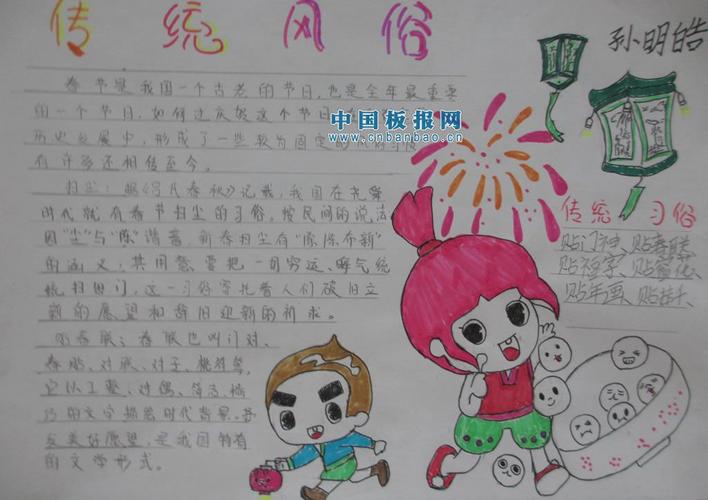 传统风俗
孙明皓
春节是我国一个古老的节日,也是全年最重要
的一个节日,如何过庆贺这个节日
历史发展中,形成了一些较为固定的
有许多还相传至今。
中国板报网
www.cnbanbao.cn
扫尘:据《吕氏春秋》记载,我国在尧舜
时代就有春节扫尘的习俗。按民间的说法
因“尘”与“陈”谐音,新春扫尘有“除陈布新”
的涵义,其用意要把一切穷运、晦气统
统扫出门。这一习俗寄托着人们破旧立
新的愿望和辞旧迎新的祈求。
春联:春联也叫门对、
春贴、对联、对子、桃符等,
它以工整、对偶、简洁、精
巧的文字描绘时代背景、
美好愿望,是我国特有
的文学形式。
传统习俗
贴门神、贴春联
贴福字、贴窗花、
贴年画、贴挂千